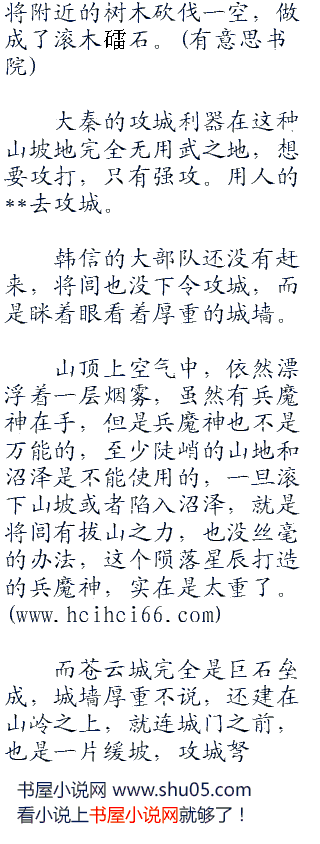 将附近的树木砍伐一空，做
成了滚木礌石。(有意思书
院)
大秦的攻城利器在这种
山坡地完全无用武之地，想
要攻打，只有强攻。用人的
**去攻城。
韩信的大部队还没有赶
来，将闾也没下令攻城，而
是眯着眼看着厚重的城墙。
山顶上空气中，依然漂
浮着一层烟雾，虽然有兵魔
神在手，但是兵魔神也不是
万能的，至少陡峭的山地和
沼泽是不能使用的，一旦滚
下山坡或者陷入沼泽，就是
将闾有拔山之力，也没丝毫
的办法，这个陨落星辰打造
的兵魔神，实在是太重了。
(www.hcihci66.com)
而苍云城完全是巨石垒
成，城墙厚重不说，还建在
山岭之上，就连城门之前，
也是一片缓坡，攻城弩
书屋小说网 www.shu05.com
看小说上书屋小说网就够了！